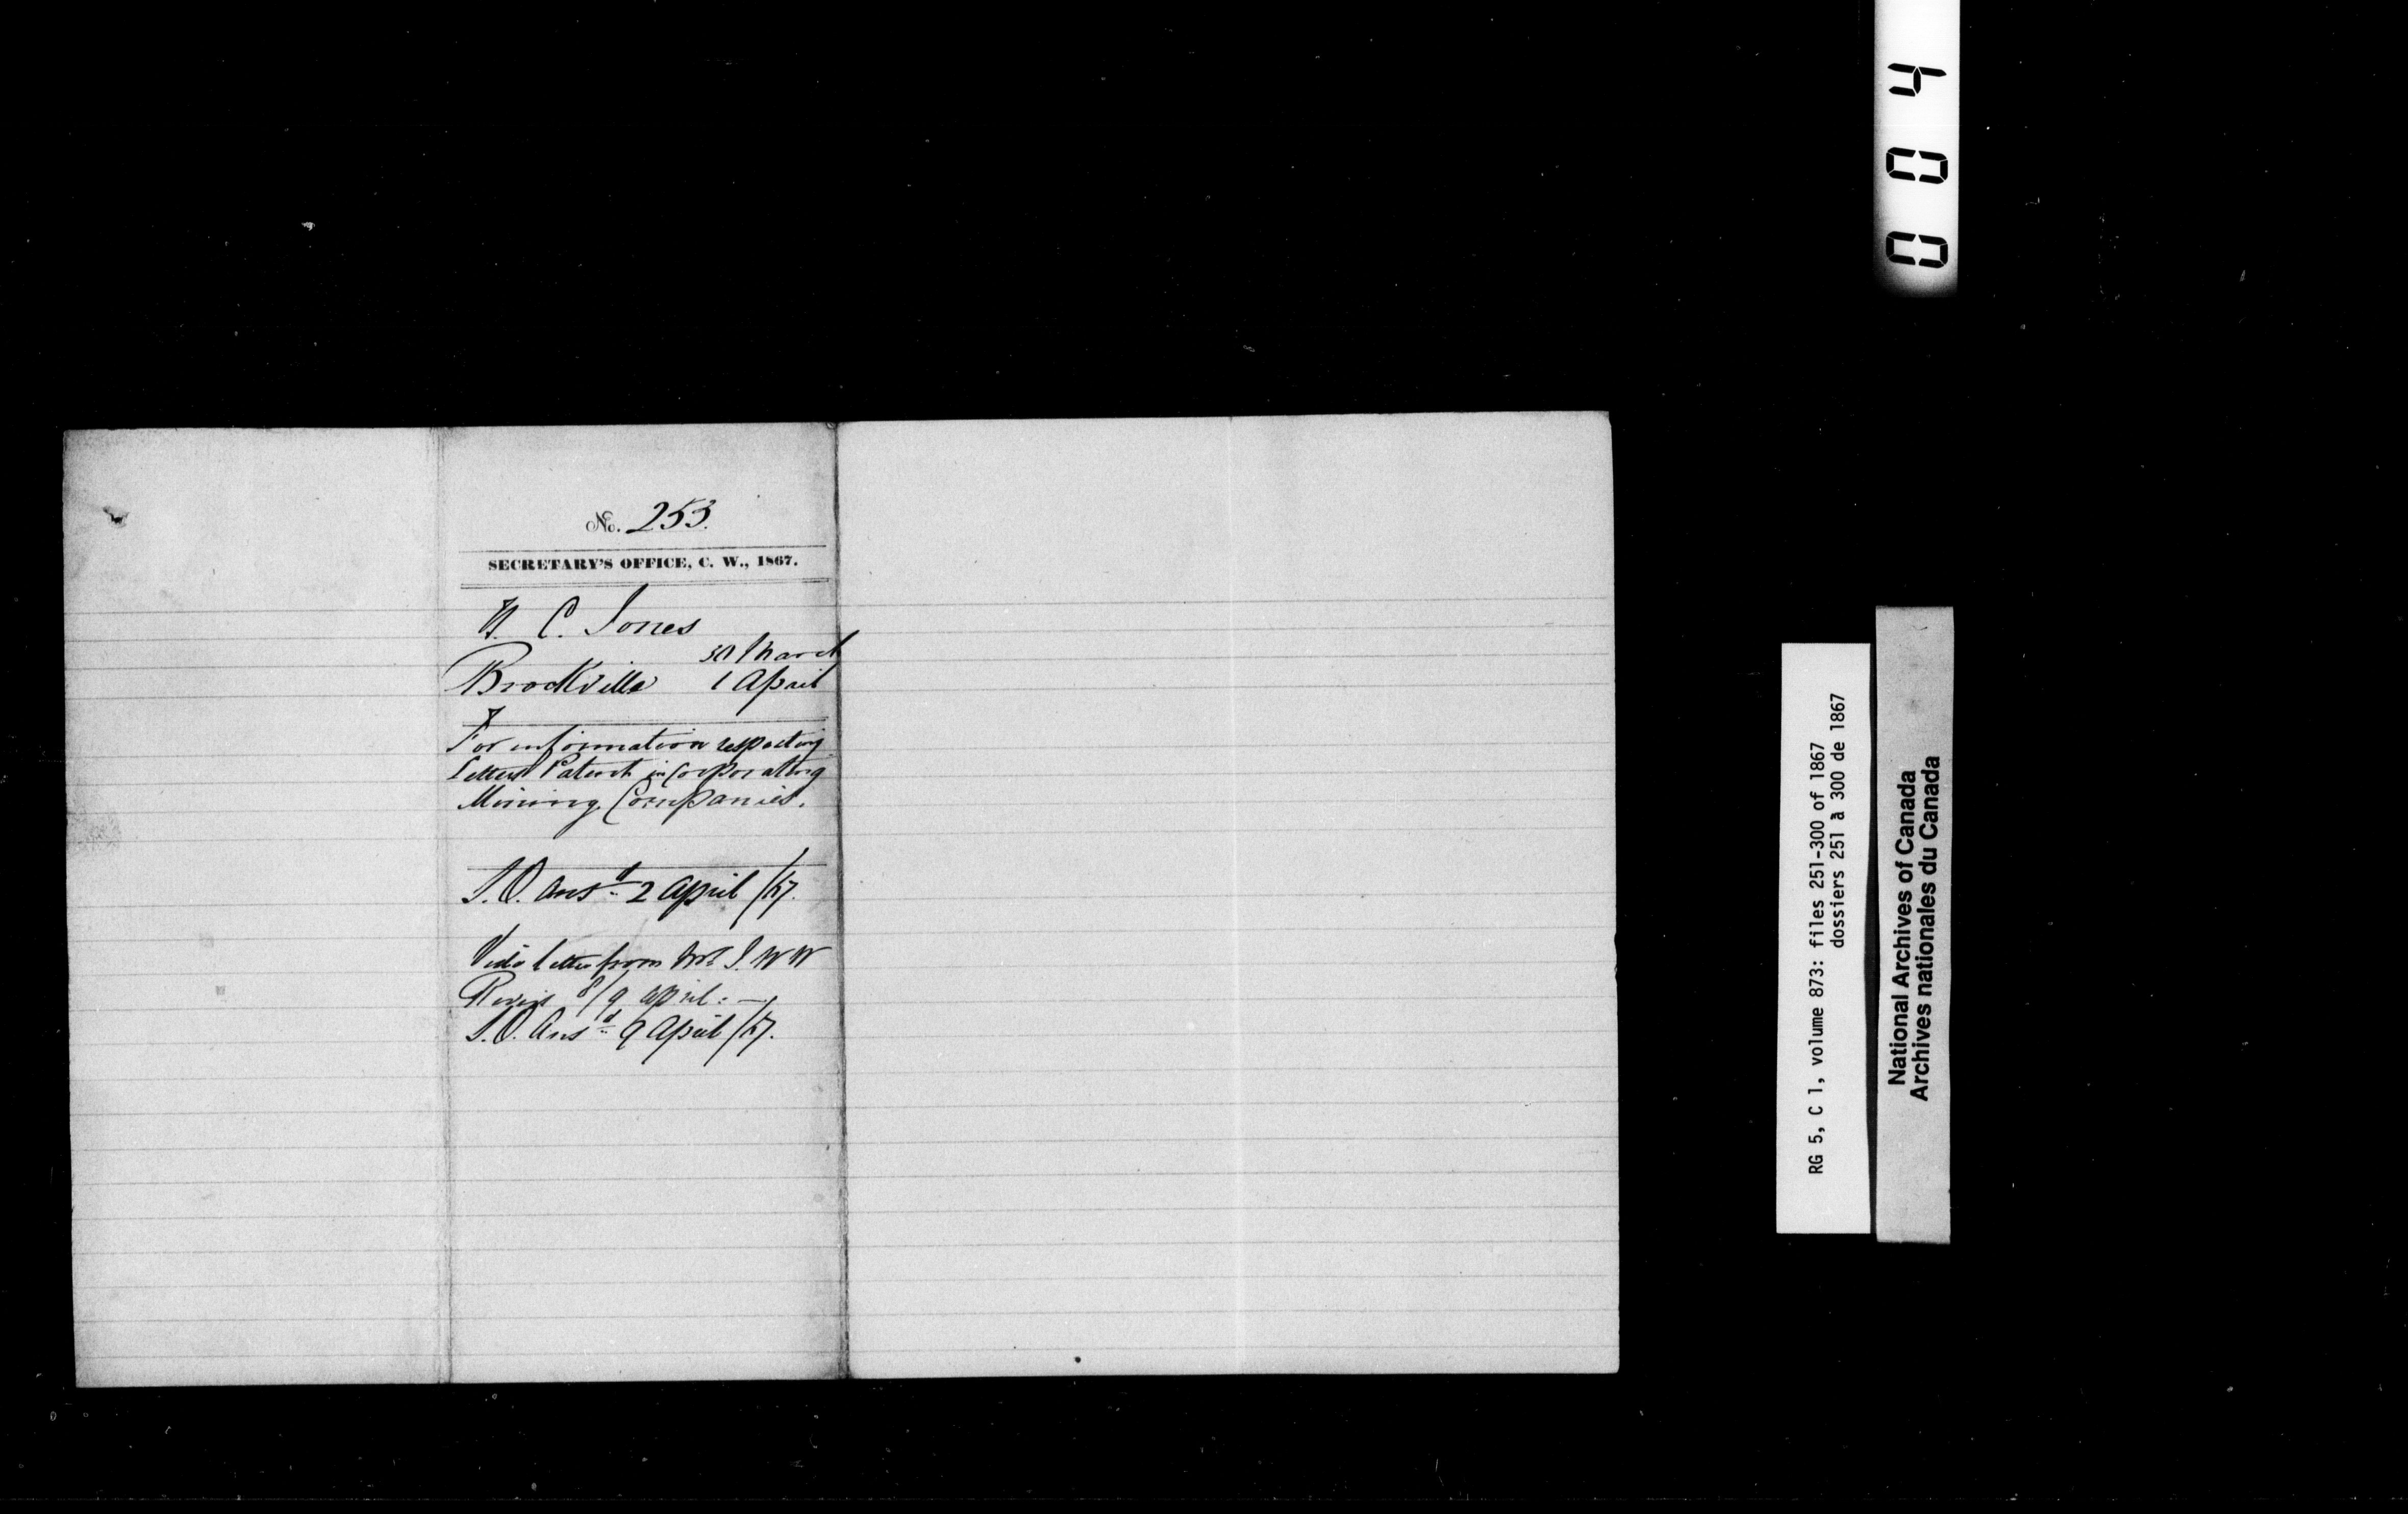 No. 253.
SECRETARY'S OFFICE, C. W., 1867.
C. Jones
30 March
Brockville 1 April
For information respecting
Letters Patent incorporating
Mining Companies.
S.O. Ansd 2 April /67.
Vide letter from Mr J. W W
8/9 April:—
S.O. Ansd 9 April /67.
004
RG 5, C 1, volume 873: files 251-300 of 1867
dossiers 251 à 300 de 1867
National Archives of Canada
Archives nationales du Canada